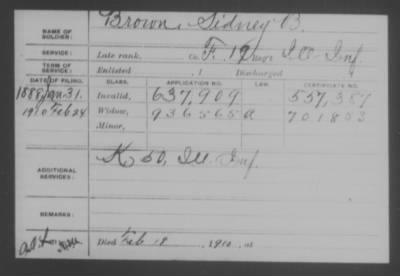 NAME OF SOLDIER: Brown, Sidney B.
SERVICE: Late rank, Co. F, 19 Reg't Ill. Inf.
TERM OF SERVICE: Enlisted , 1 Discharged
DATE OF FILING. CLASS. APPLICATION NO. LAW. CERTIFICATE NO.
1888 Jan. 31. Invalid, 637,909 557,387
1910 Feb 24 Widow, 936565 a 701853
Minor,
ADDITIONAL SERVICES: K 50, Ill. Inf.
REMARKS:
Died Feb 18, 1910, at